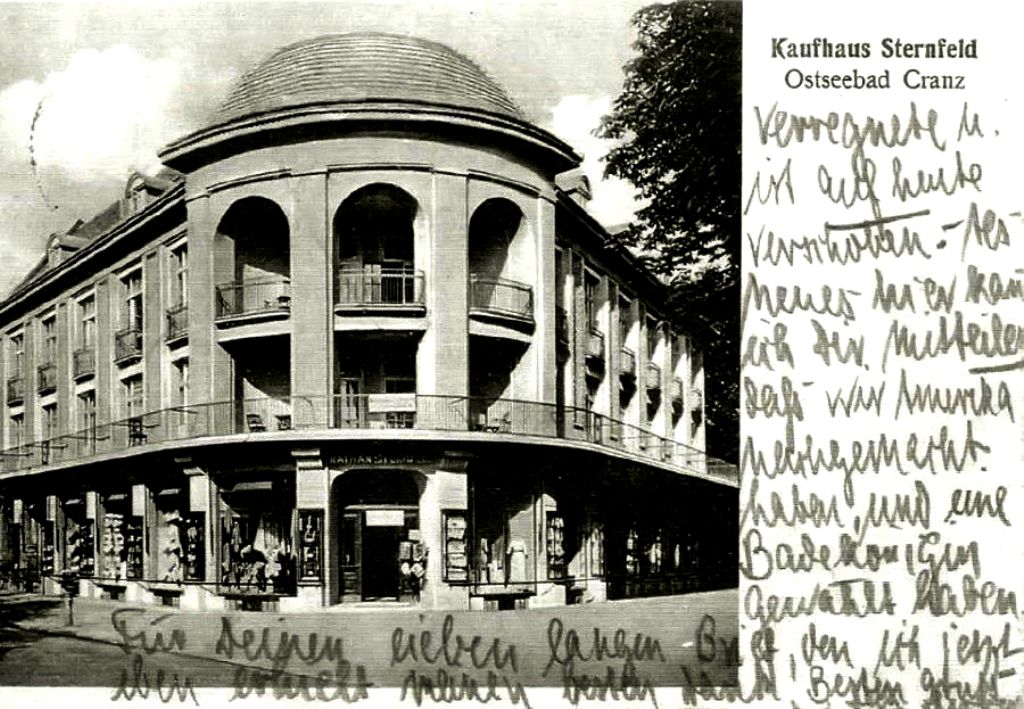 Kaufhaus Sternfeld
Ostseebad Cranz
verregnete u.
ist auf heute
verschoben. -
neues hier kann
ich Dir mitteilen
daß wir Amerika
nachgemacht
haben, und eine
Badekönigin
gewählt haben.
NATHAN STERN
Für Deinen lieben langen Brief, den ich jetzt
eben erhielt meinen besten Dank! Besten Gruß